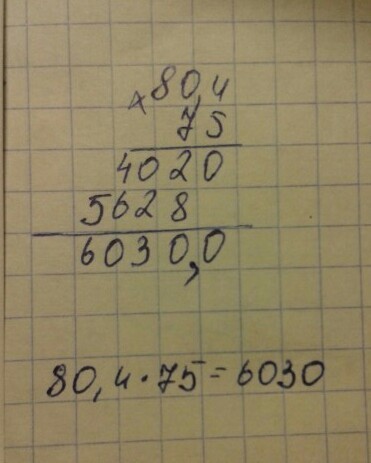 × 80,4
75
4020
5628
6030,0
80,4·75=6030